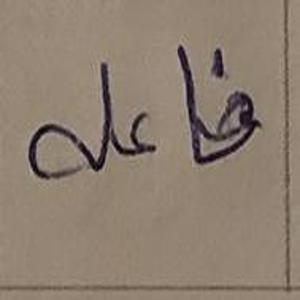 فاعله